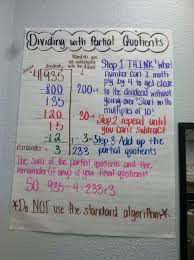 Dividing with Partial Quotients
Step 1 THINK! What
number can I multi-
ply by 4 to get close
to the dividend without
going over? Start with
multiples of 10!
Step 2 repeat until
you can't subtract
Step 3 Add up the
partial quotients
dividend
4 935
-800 200
135
-120 30
15
-12 3
remainder = 3 233
The sum of the partial quotients and the
remainder (if any) is your final quotient!
SO 935÷4=233r3
*Do NOT use the standard algorithm*